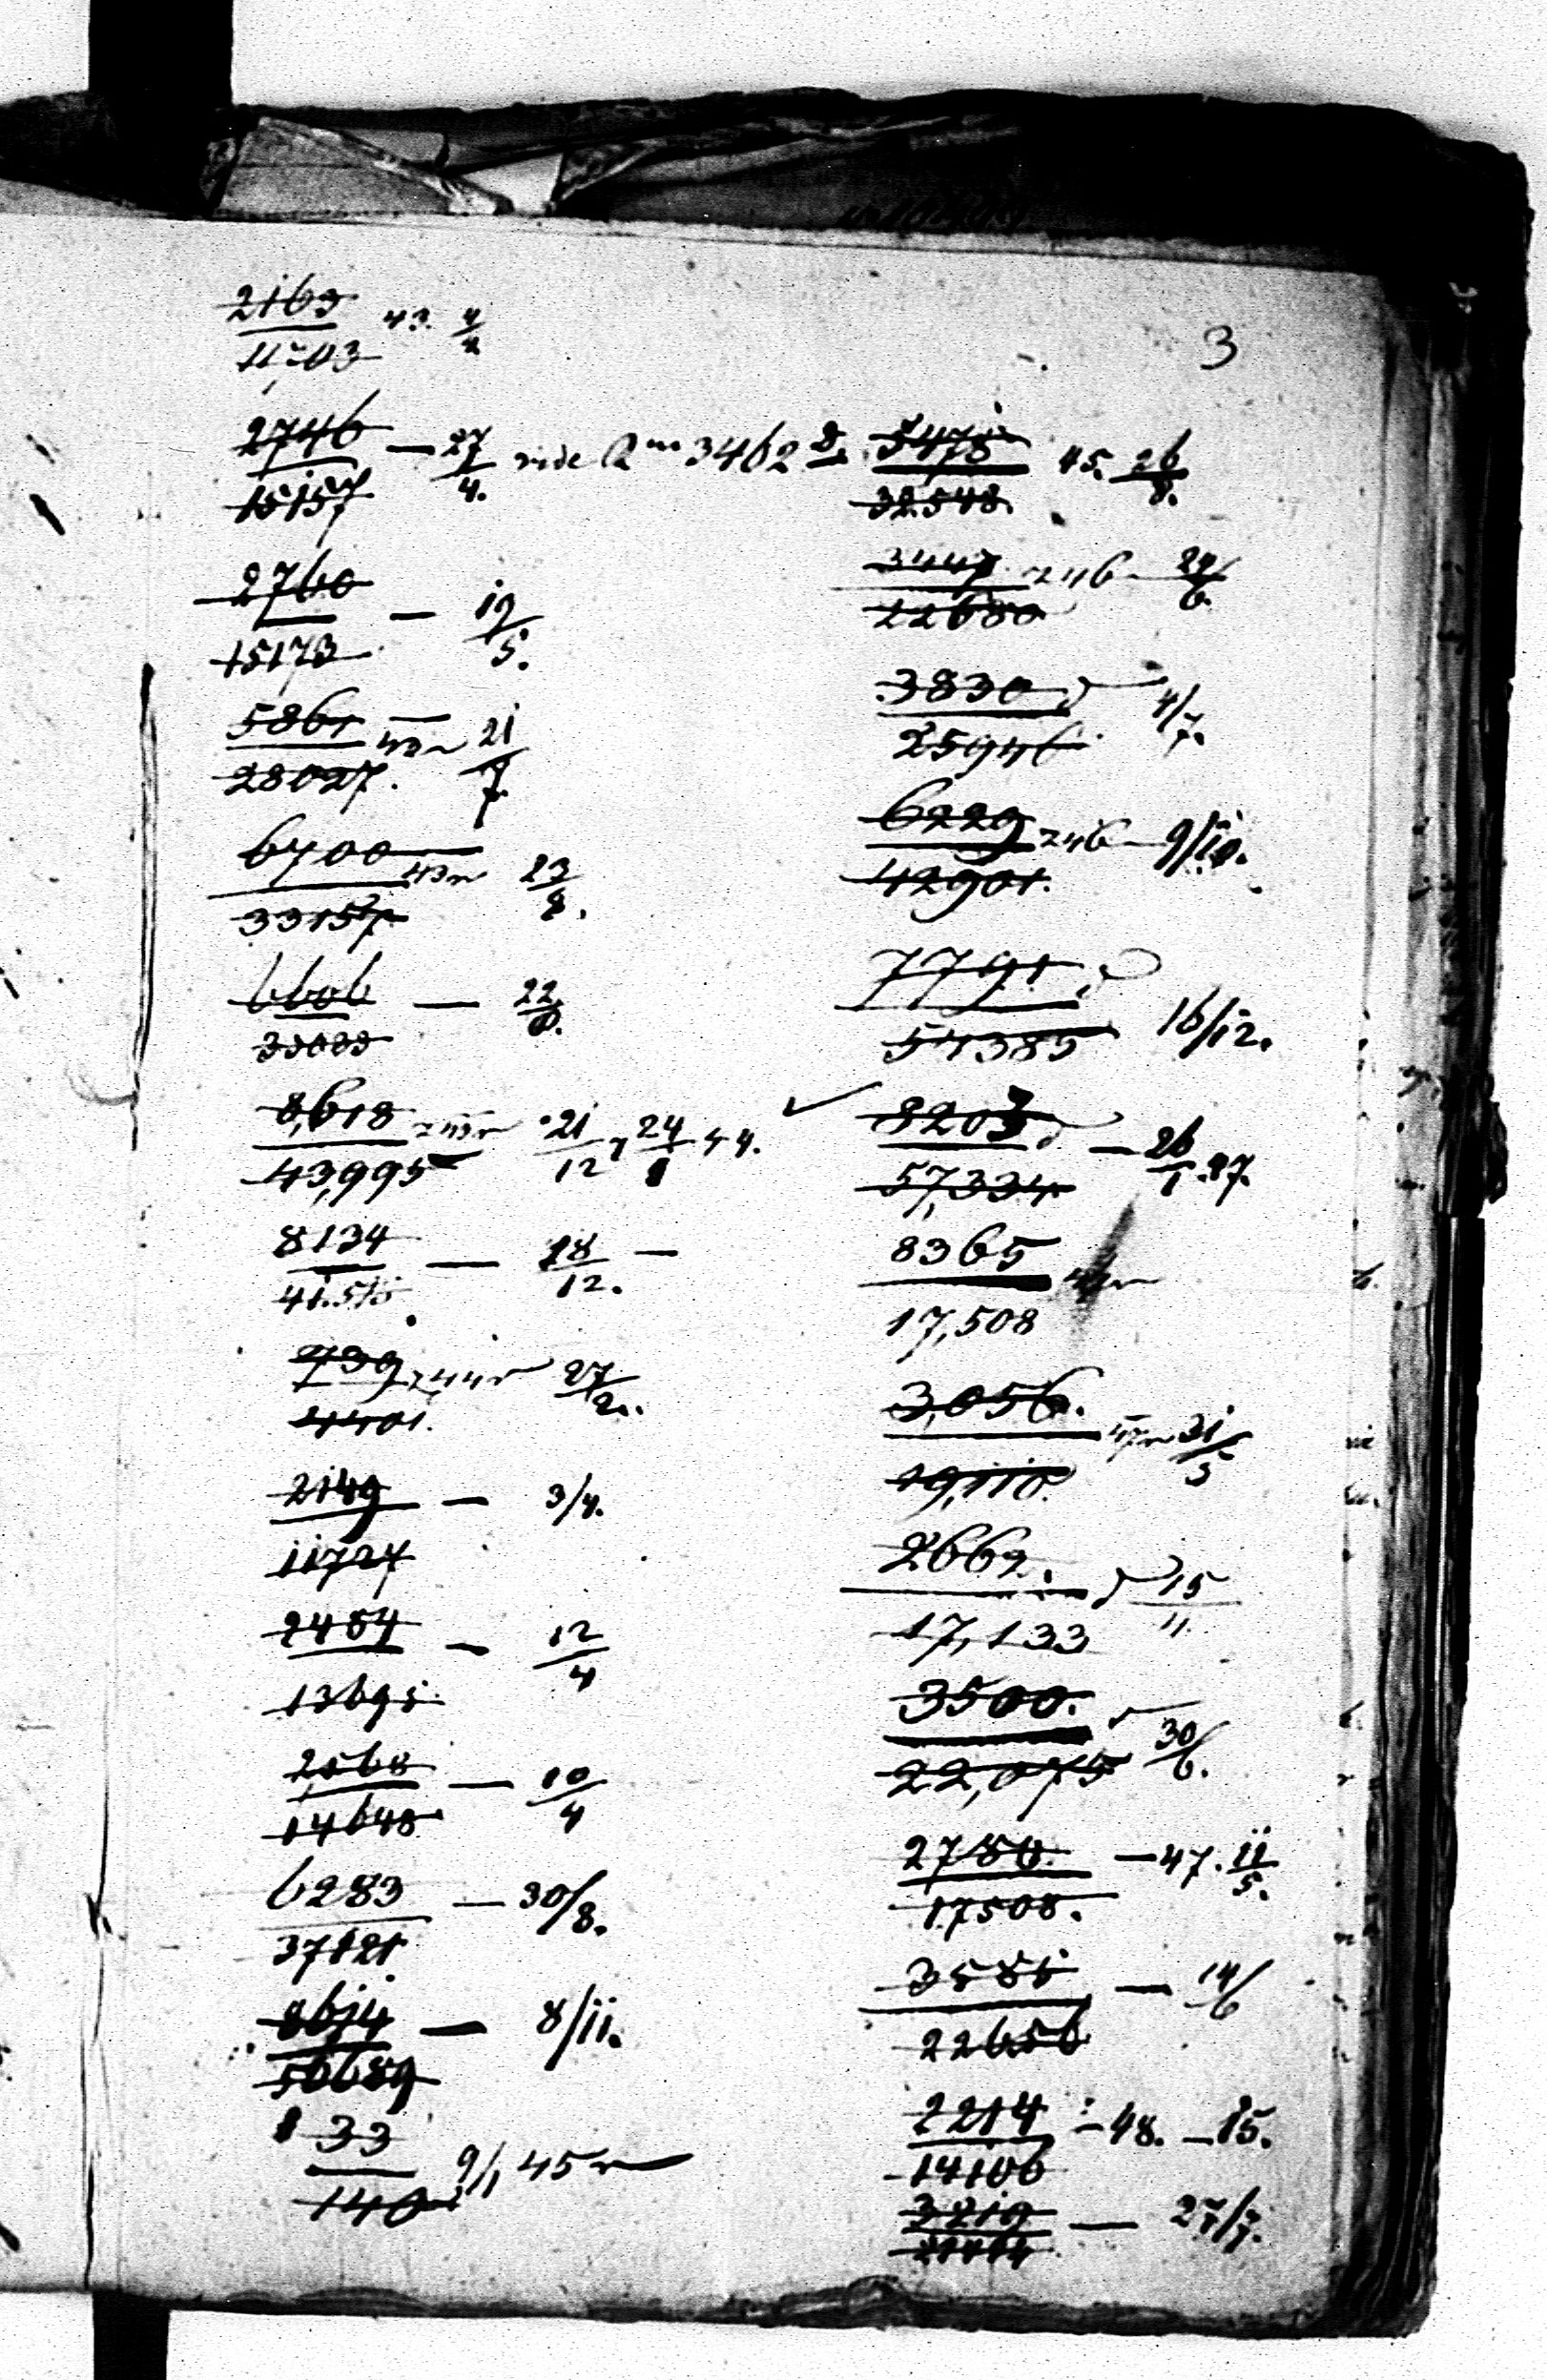 3
2163
11,703
43. 4/4
2746
15157
— 27/4. vide 3462
2760
15173
— 19/5.
5861
28027.
— 43 r 21/7
6700
33157.
43 r 23/8.
6606
33033
— 22/8.
8,618
43,995
z 43 r 21/12 24/1 44.
8134
41.515
— 18/12. —
739
4401.
z 44 r 27/2.
2149
11727
— 3/4.
2484
13695
— 12/4
2,568
14648
— 10/4
6283
37121
— 30/8.
8614
50689
— 8/11.
133
140
9/1 45 r
5475
32548.
45. 26/8.
3447
22680
z 46 — 29/6.
3830
25946
4/7.
6229
42901.
z 46 — 9/10.
7791
54385
16/12.
8203
57,334
— 26/1.47.
8365
17,508
3,056.
19,110.
47 r 31/5
2662.
17,133
15/11.
3500.
22,075
30/6.
2780.
17508.
— 47. 11/5.
3585
22656
— 14/6
2214
14106
— 48. — 15.
3219
— 27/7.